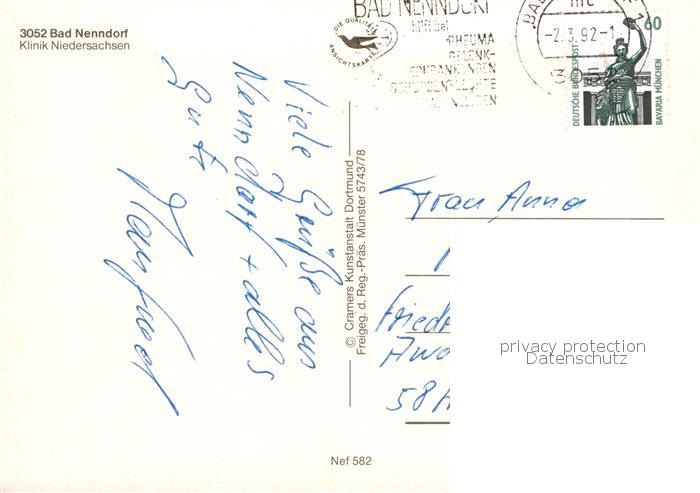 3052 Bad Nenndorf
Klinik Niedersachsen
DIE QUALITÄTS
ANSICHTSKARTE
BAD NENNDORF
hilft bei
RHEUMA
GELENK-
ERKRANKUNGEN
-2.3.92-1
60
DEUTSCHE BUNDESPOST
BAVARIA MÜNCHEN
Viele Grüße aus
Nenndorf + alles
Gute
Manfred
© Cramers Kunstanstalt Dortmund
Freigeg. d. Reg.-Präs. Münster 5743/78
Frau Anna
Fried
58
privacy protection
Datenschutz
Nef 582